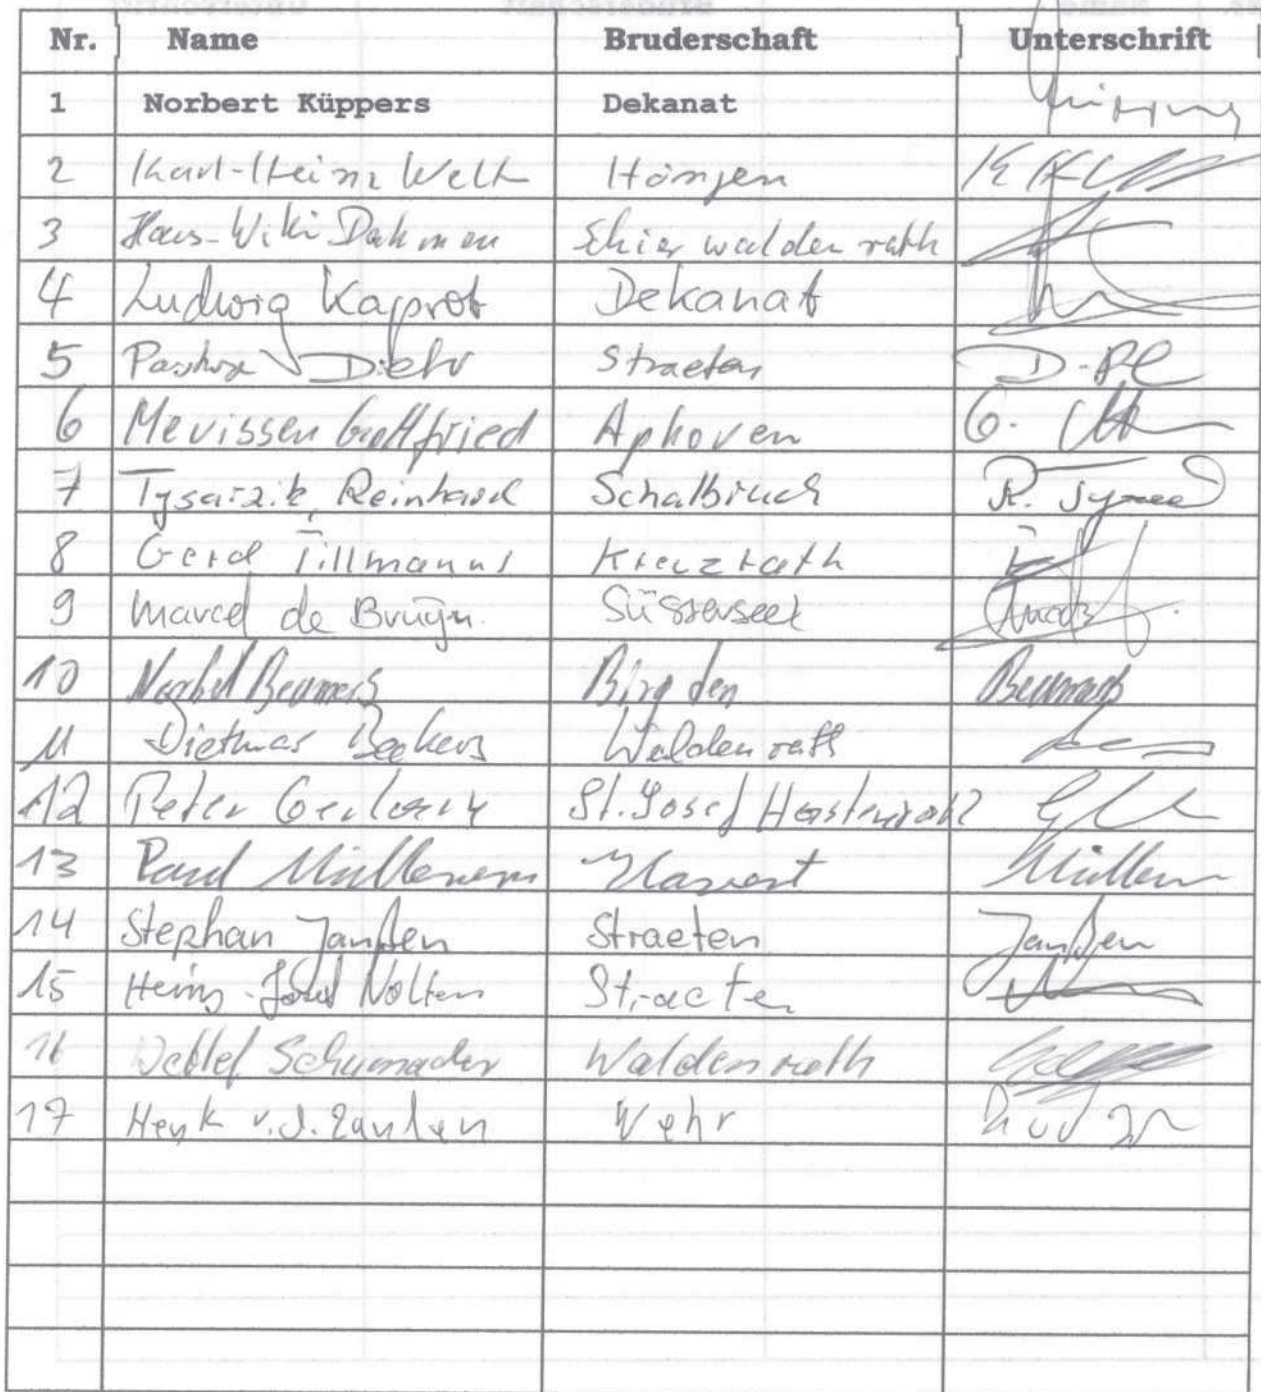 Nr. Name Bruderschaft Unterschrift
1 Norbert Küppers Dekanat
2 Karl-Heinz Welk Höngen
3 Hans-Willi Dahmen Schierwaldenrath
4 Ludwig Kasprot Dekanat
5 Pastor Diehr Straeten D.
6 Mevissen Gottfried Aphoven G.
7 Tysarzik, Reinhard Schalbruch R.
8 Gerd Tillmanns Kreuzrath
9 Marcel de Bruijn. Süsterseel
10 Norbert Beumers Birgden Beumers
11 Dietmar Beekers Waldenrath
12 Peter St. Josef Hastenrath
13 Paul Müllenem Havert
14 Stephan Janßen Straeten Janßen
15 Heinz-Josef Nolten Straeten
16 Detlef Schumacher Waldenrath
17 Henk v.d. Zanden Wehr